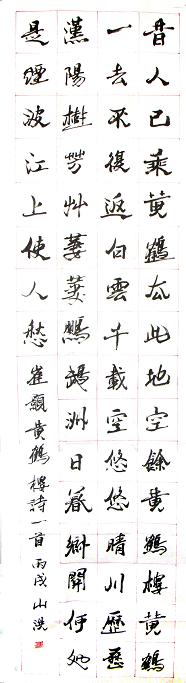 昔人已乘黃鶴去此地空餘黃鶴樓黃鶴
一去不復返白雲千載空悠悠晴川歷歷
漢陽樹芳艸萋萋鸚鵡洲日暮鄉關何處
是煙波江上使人愁 崔顥黃鶴樓詩一首 丙戌 山洪